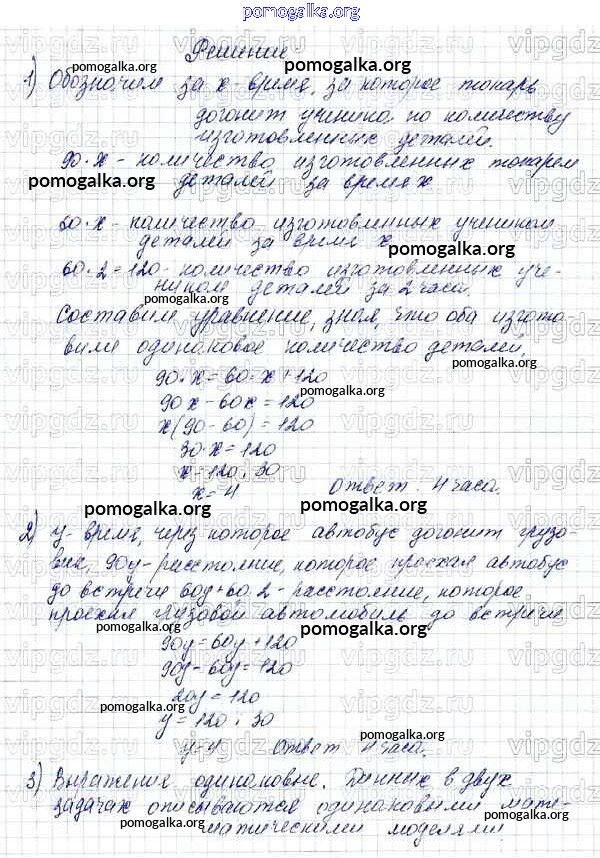 pomogalka.org
Решение
1) Обозначим за x - время, за которое токарь
догонит ученика по количеству
изготовленных деталей.
90·x - количество изготовленных токарем
pomogalka.org деталей за время x
60·x - количество изготовленных учеником
деталей за время x
pomogalka.org
60·2=120 - количество изготовленных уче-
ником деталей за 2 часа.
Составим уравнение, зная, что оба изгото-
вили одинаковое количество деталей.
90·x=60·x+120
pomogalka.org
90x-60x=120
x(90-60)=120
30·x=120
x=120:30
x=4 Ответ: 4 часа.
pomogalka.org pomogalka.org
2) y - время, через которое автобус догонит грузо-
вик, 90y - расстояние, которое проехал автобус
до встречи 60y+60·2 - расстояние, которое
проехал грузовой автомобиль до встречи
pomogalka.org pomogalka.org
90y=60y+120
90y-60y=120
20y=120
y=120:30
y=4 Ответ: 4 часа.
3) Выражение одинаковые. Данных в двух
задачах описываются одинаковыми мате-
матическими моделями
pomogalka.org pomogalka.org